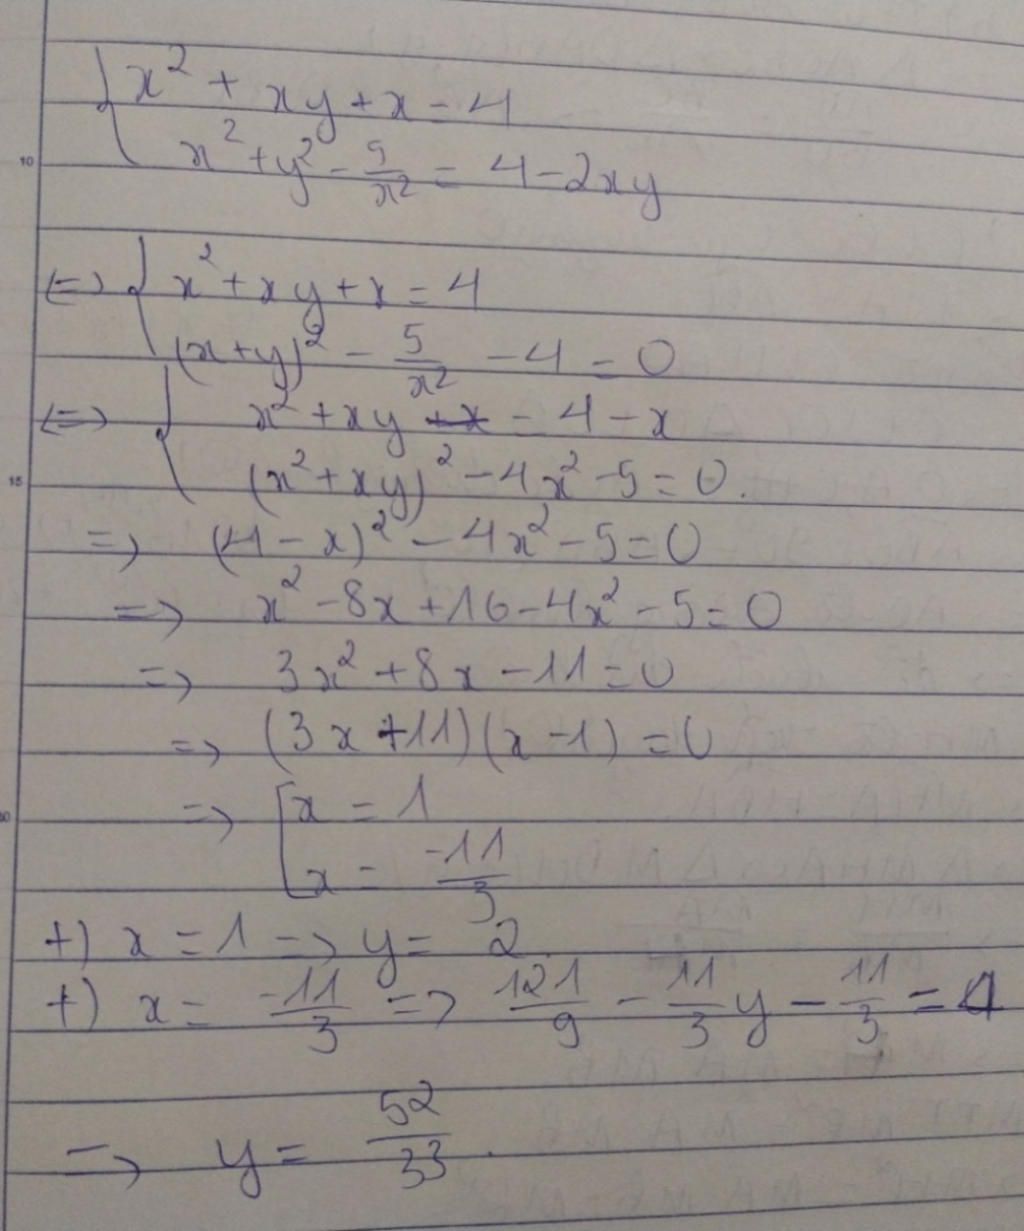 { x² + xy + x = 4
10
x² + y² - 5/x² = 4 - 2xy
(=) { x² + xy + x = 4
(x+y)² - 5/x² - 4 = 0
(=) { x² + xy +x = 4 - x
15
(x² + xy)² - 4x² - 5 = 0.
=> (4 - x)² - 4x² - 5 = 0
=> x² - 8x + 16 - 4x² - 5 = 0
=> 3x² + 8x - 11 = 0
=> (3x + 11)(x - 1) = 0
=> [ x = 1
x = -11/3
+) x = 1 => y = 2
+) x = -11/3 => 121/9 - 11/3 y - 11/3 = 4
=> y = 52/33.